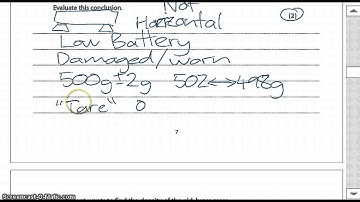 Evaluate this conclusion.
Not
Horizontal
(2)
Low Battery
Damaged/worn
500g ± 2g 502 ↔ 498g
"Tare" 0
7
Screencast-O-Matic.com